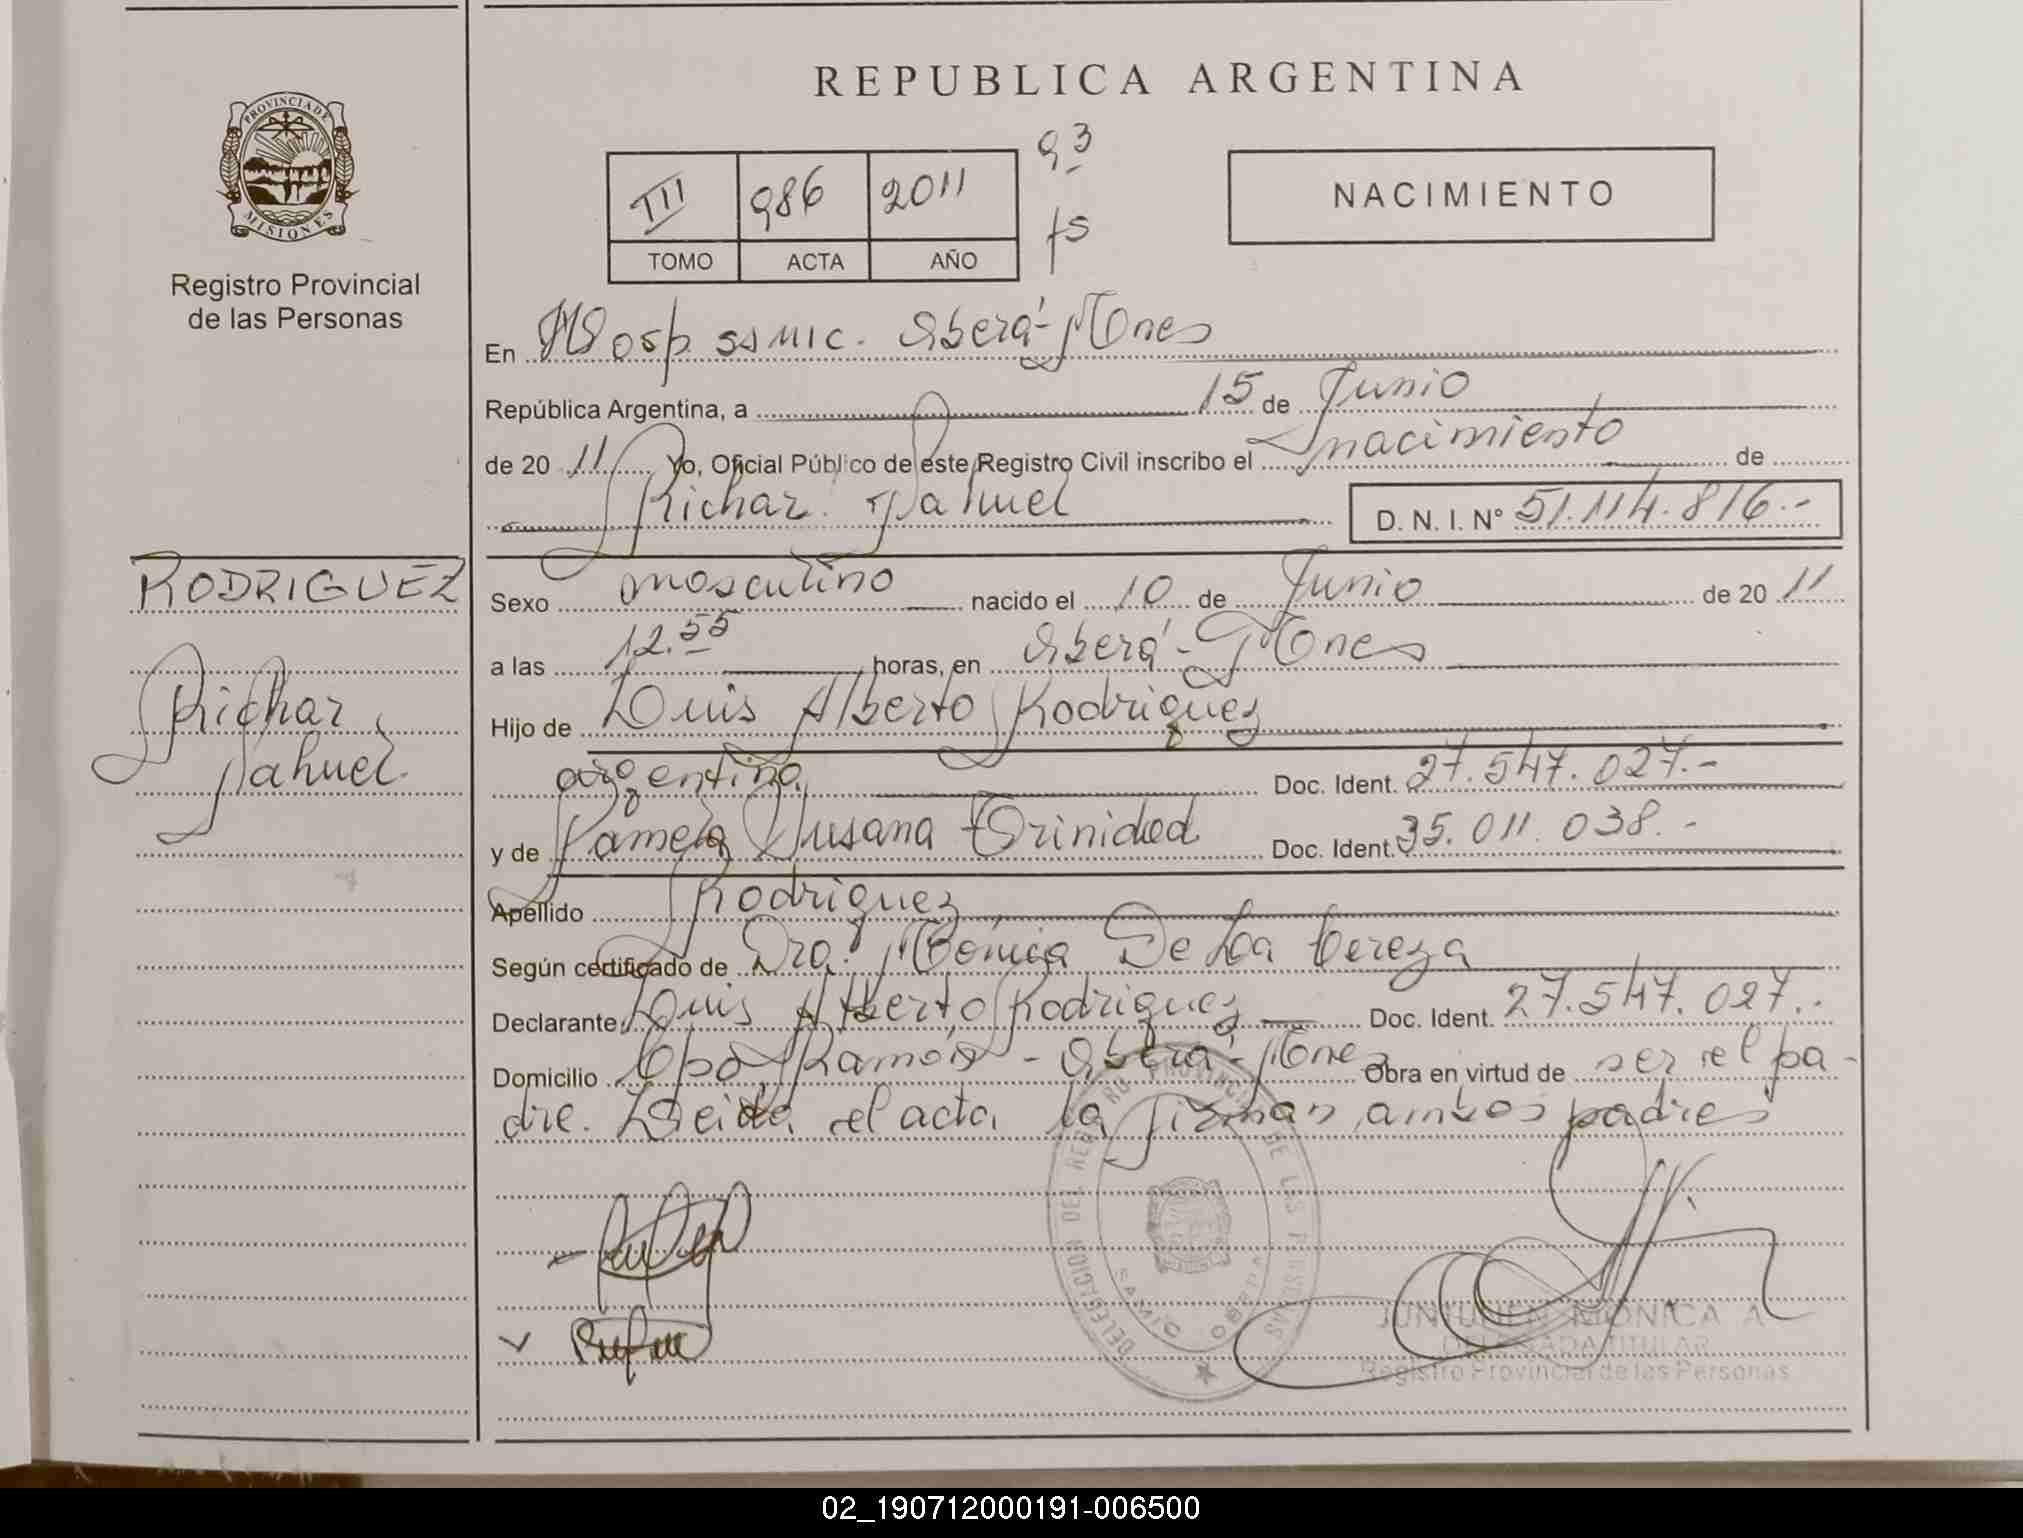 REPUBLICA ARGENTINA
PROVINCIA DE
MISIONES
Registro Provincial
de las Personas
III 986 2011
TOMO ACTA AÑO
93
fs
NACIMIENTO
En Hosp. SAMIC. Oberá - Mnes
República Argentina, a 15 de Junio
de 20 11 Yo, Oficial Público de este Registro Civil inscribo el nacimiento de
Richar Nahuel D. N. I. N° 51.114.816.-
RODRIGUEZ
Richar
Nahuel.
Sexo masculino nacido el 10 de Junio de 20 11
a las 12.55 horas, en Oberá - Mnes
Hijo de Luis Alberto Rodriguez
argentina Doc. Ident. 27.547.027.-
y de Pamela Susana Trinidad Doc. Ident. 35.011.038.-
Apellido Rodriguez
Según certificado de Dra. Mónica De La
Declarante Luis Alberto Rodriguez Doc. Ident. 27.547.027.-
Domicilio Cpo. Ramón - Oberá - Mnes Obra en virtud de ser el pa-
dre. Leida el acta la firman ambos padres
DELEGACION DEL REGISTRO PROVINCIAL DE LAS PERSONAS
SAMIC OBERA
MONICA A
DELEGADA TITULAR
Registro Provincial de las Personas
02_190712000191-006500